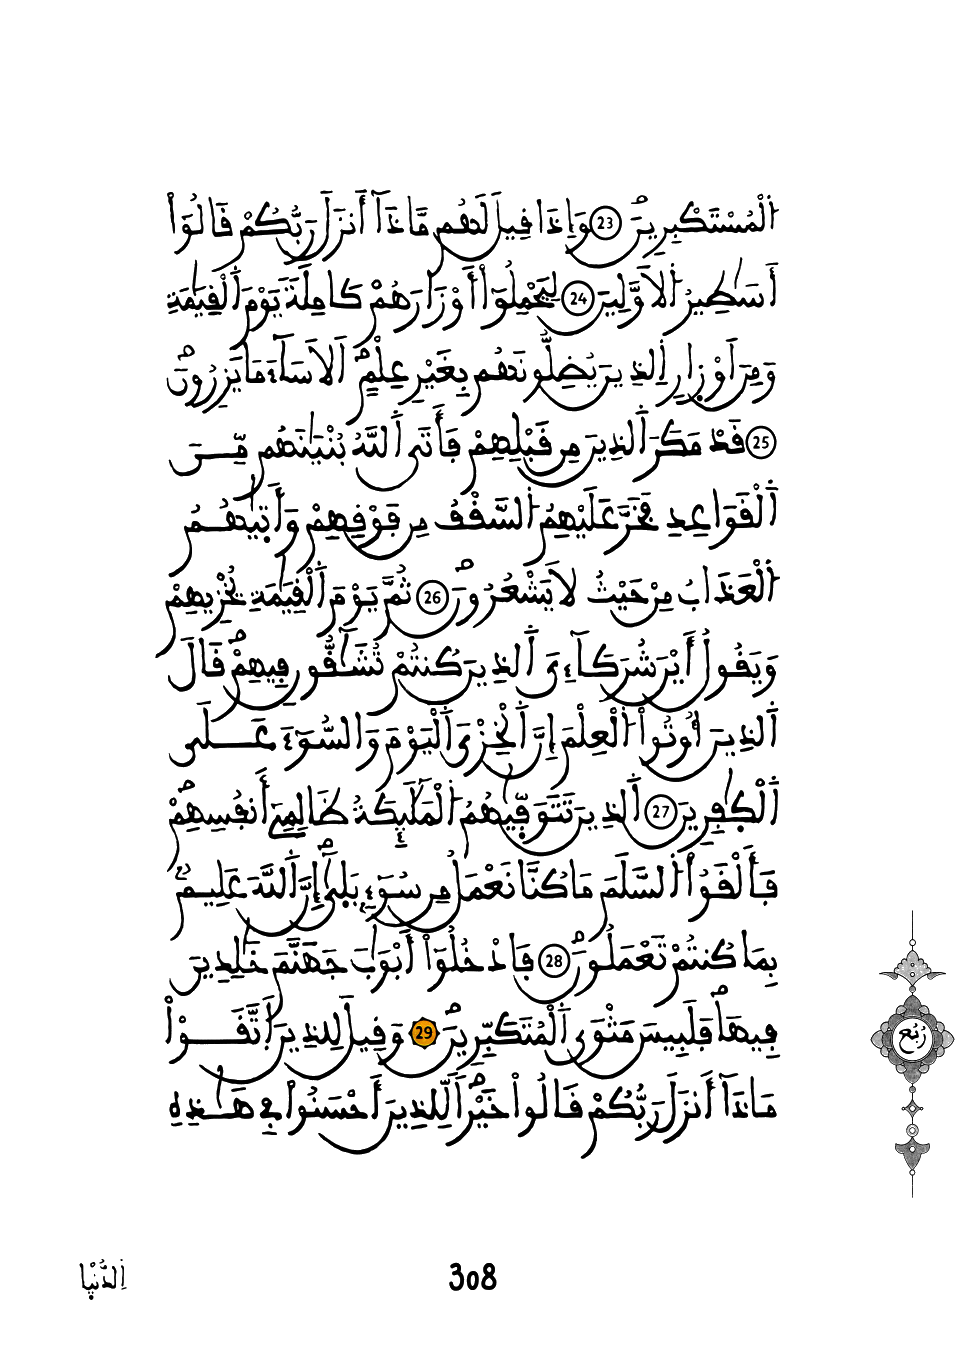 اَ۬لْمُسْتَكْبِرِينَۖ 23 وَإِذَا قِيلَ لَهُم مَّاذَآ أَنزَلَ رَبُّكُمْ قَالُوٓاْ
أَسَٰطِيرُ اُ۬لَاوَّلِينَ 24 لِيَحْمِلُوٓاْ أَوْزَارَهُمْ كَامِلَةٗ يَوْمَ اَ۬لْقِيَٰمَةِ
وَمِنَ اَوْزِارِ اِ۬لذِينَ يُضِلُّونَهُم بِغَيْرِ عِلْمٍۖ اَلَا سَآءَ مَا يَزِرُونَۖ
25 قَدْ مَكَرَ اَ۬لذِينَ مِن قَبْلِهِمْ فَأَتَى اَ۬للَّهُ بُنْيَٰنَهُم مِّنَ
اَ۬لْقَوَاعِدِ فَخَرَّ عَلَيْهِمُ اُ۬لسَّقْفُ مِن فَوْقِهِمْ وَأَت۪يٰهُمُ
اُ۬لْعَذَابُ مِنْ حَيْثُ لَا يَشْعُرُونَۖ 26 ثُمَّ يَوْمَ اَ۬لْقِيَٰمَةِ يُخْزِيهِمْ
وَيَقُولُ أَيْنَ شُرَكَآءِيَ اَ۬لذِينَ كُنتُمْ تُشَٰٓقُّونِ فِيهِمْۖ قَالَ
اَ۬لذِينَ أُوتُواْ اُ۬لْعِلْمَ إِنَّ اَ۬لْخِزْيَ اَ۬لْيَوْمَ وَالسُّوٓءَ عَلَى
اَ۬لْكٰ۪فِرِينَ 27 اَ۬لذِينَ تَتَوَفّ۪يٰهُمُ اُ۬لْمَلَٰٓئِكَةُ ظَالِمِےٓ أَنفُسِهِمْۖ
فَأَلْقَوُاْ اُ۬لسَّلَمَ مَا كُنَّا نَعْمَلُ مِن سُوٓءِۢ بَل۪ىٰٓۖ إِنَّ اَ۬للَّهَ عَلِيمُۢ
بِمَا كُنتُمْ تَعْمَلُونَۖ 28 فَادْخُلُوٓاْ أَبْوَٰبَ جَهَنَّمَ خَٰلِدِينَ
فِيهَاۖ فَلَبِيسَ مَثْوَى اَ۬لْمُتَكَبِّرِينَۖ 29 وَقِيلَ لِلذِينَ اَ۪تَّقَوْاْ
مَاذَآ أَنزَلَ رَبُّكُمْ قَالُواْ خَيْراٗۖ لِّلذِينَ أَحْسَنُواْ فِے هَٰذِهِ
رُبُع
اِ۬لدُّنْي۪ا
308